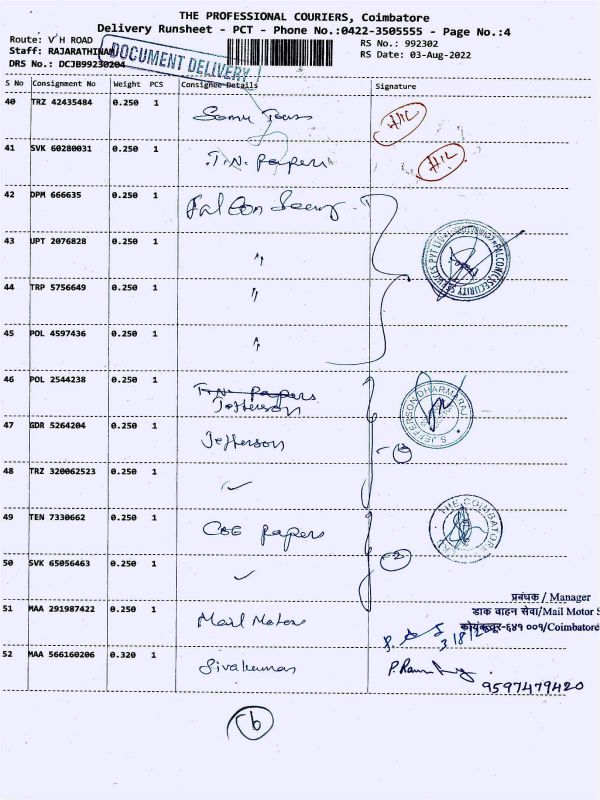 THE PROFESSIONAL COURIERS, Coimbatore
Delivery Runsheet - PCT - Phone No.:0422-3505555 - Page No.:4
Route: V H ROAD
RS No.: 992302
Staff: RAJARATHINAM
RS Date: 03-Aug-2022
DRS No.: DCJB99230204
DOCUMENT DELIVERY
S No Consignment No Weight PCS Consignee Details Signature
40 TRZ 42435484 0.250 1
41 SVK 60280031 0.250 1 T.N. Papers
42 DPM 666635 0.250 1 Falcon
43 UPT 2076828 0.250 1 "
44 TRP 5756649 0.250 1 "
45 POL 4597436 0.250 1 "
46 POL 2544238 0.250 1 T.N. Papers
Jefferson
S JEFFERSON DHARMARAJ
47 GDR 5264204 0.250 1 Jefferson
48 TRZ 320062523 0.250 1
49 TEN 7330662 0.250 1 Papers
THE COIMBATORE
50 SVK 65056463 0.250 1
2
प्रबंधक / Manager
डाक वाहन सेवा/Mail Motor S
51 MAA 291987422 0.250 1 Mail Motors
६४१ ००१/Coimbatore
3/8/
52 MAA 566160206 0.320 1 Sivakumar
9597479420
6